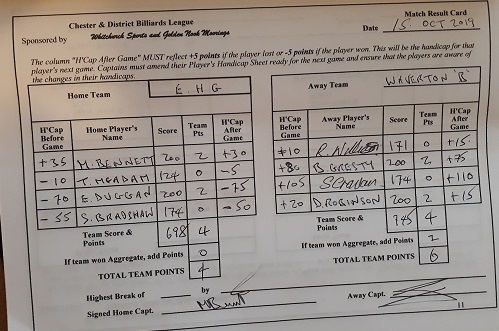 Chester & District Billiards League
Match Result Card
Sponsored by Whitchurch Sports and Golden Nook Moorings
Date 15. OCT 2019
The column "H'Cap After Game" MUST reflect +5 points if the player lost or -5 points if the player won. This will be the handicap for that
player's next game. Captains must amend their Player's Handicap Sheet ready for the next game and ensure that the players are aware of
the changes in their handicaps.
Home Team E.H.G
H'Cap Before Game Home Player's Name Score Team Pts H'Cap After Game
+35 M.BENNETT 200 2 +30
-10 T.MCADAM 124 0 -5
-70 E.DUGGAN 200 2 -75
-55 S.BRADSHAW 174 0 -50
Team Score & Points 698 4
If team won Aggregate, add Points 0
TOTAL TEAM POINTS 4
Away Team WAVERTON 'B'
H'Cap Before Game Away Player's Name Score Team Pts H'Cap After Game
+10 R. 171 0 +15
+80 B.GRESTY 200 2 +75
+105 S 174 0 +110
+20 D.ROBINSON 200 2 +15
Team Score & Points 745 4
If team won Aggregate, add Points 2
TOTAL TEAM POINTS 6
Highest Break of by
Signed Home Capt.
Away Capt.
11